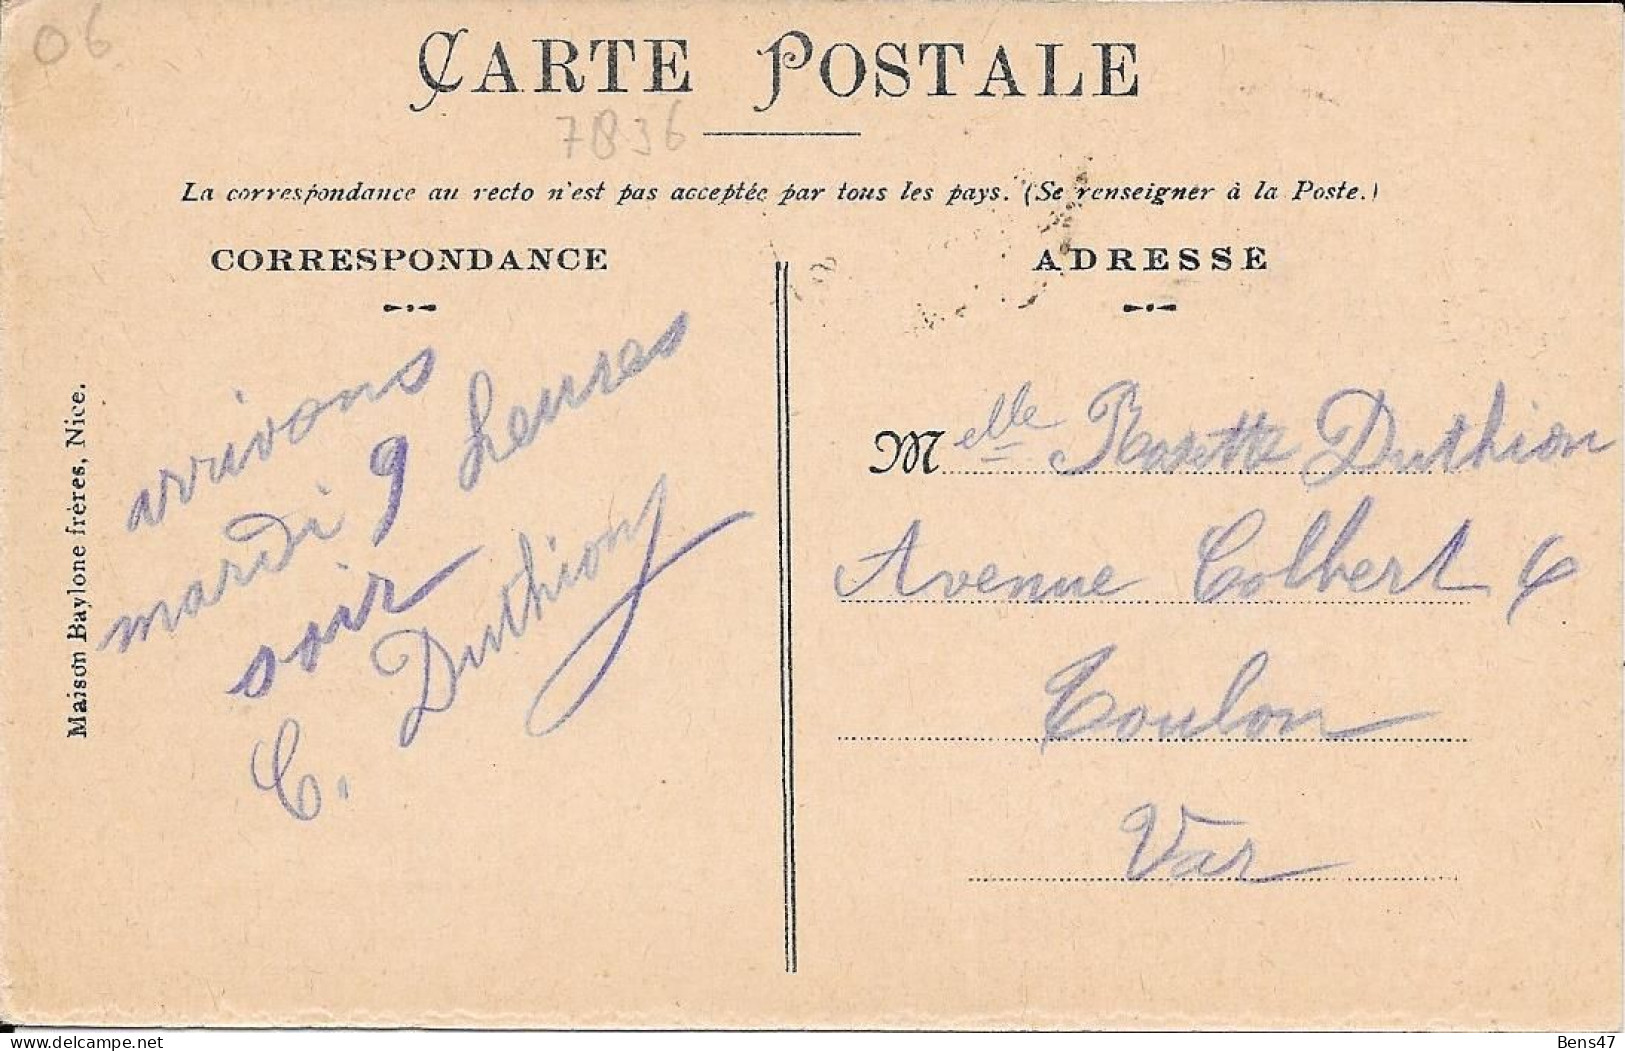 06
CARTE POSTALE
7836
La correspondance au recto n'est pas acceptée par tous les pays. (Se renseigner à la Poste.)
CORRESPONDANCE
arrivons
mardi 9 heures
soir
C. Duthion
Maison Baylone frères, Nice.
ADRESSE
Melle Rosette Duthion
Avenue Colbert 6
Toulon
Var
Bens47